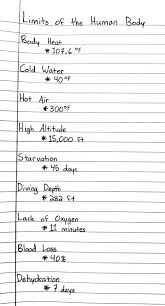 Limits of the Human Body
Body Heat
* 107.6 °F
Cold Water
* 40 °F
Hot Air
* 300 °F
High Altitude
* 15,000 ft
Starvation
* 45 days
Diving Depth
* 282 ft
Lack of Oxygen
* 11 minutes
Blood Loss
* 40%
Dehydration
* 7 days